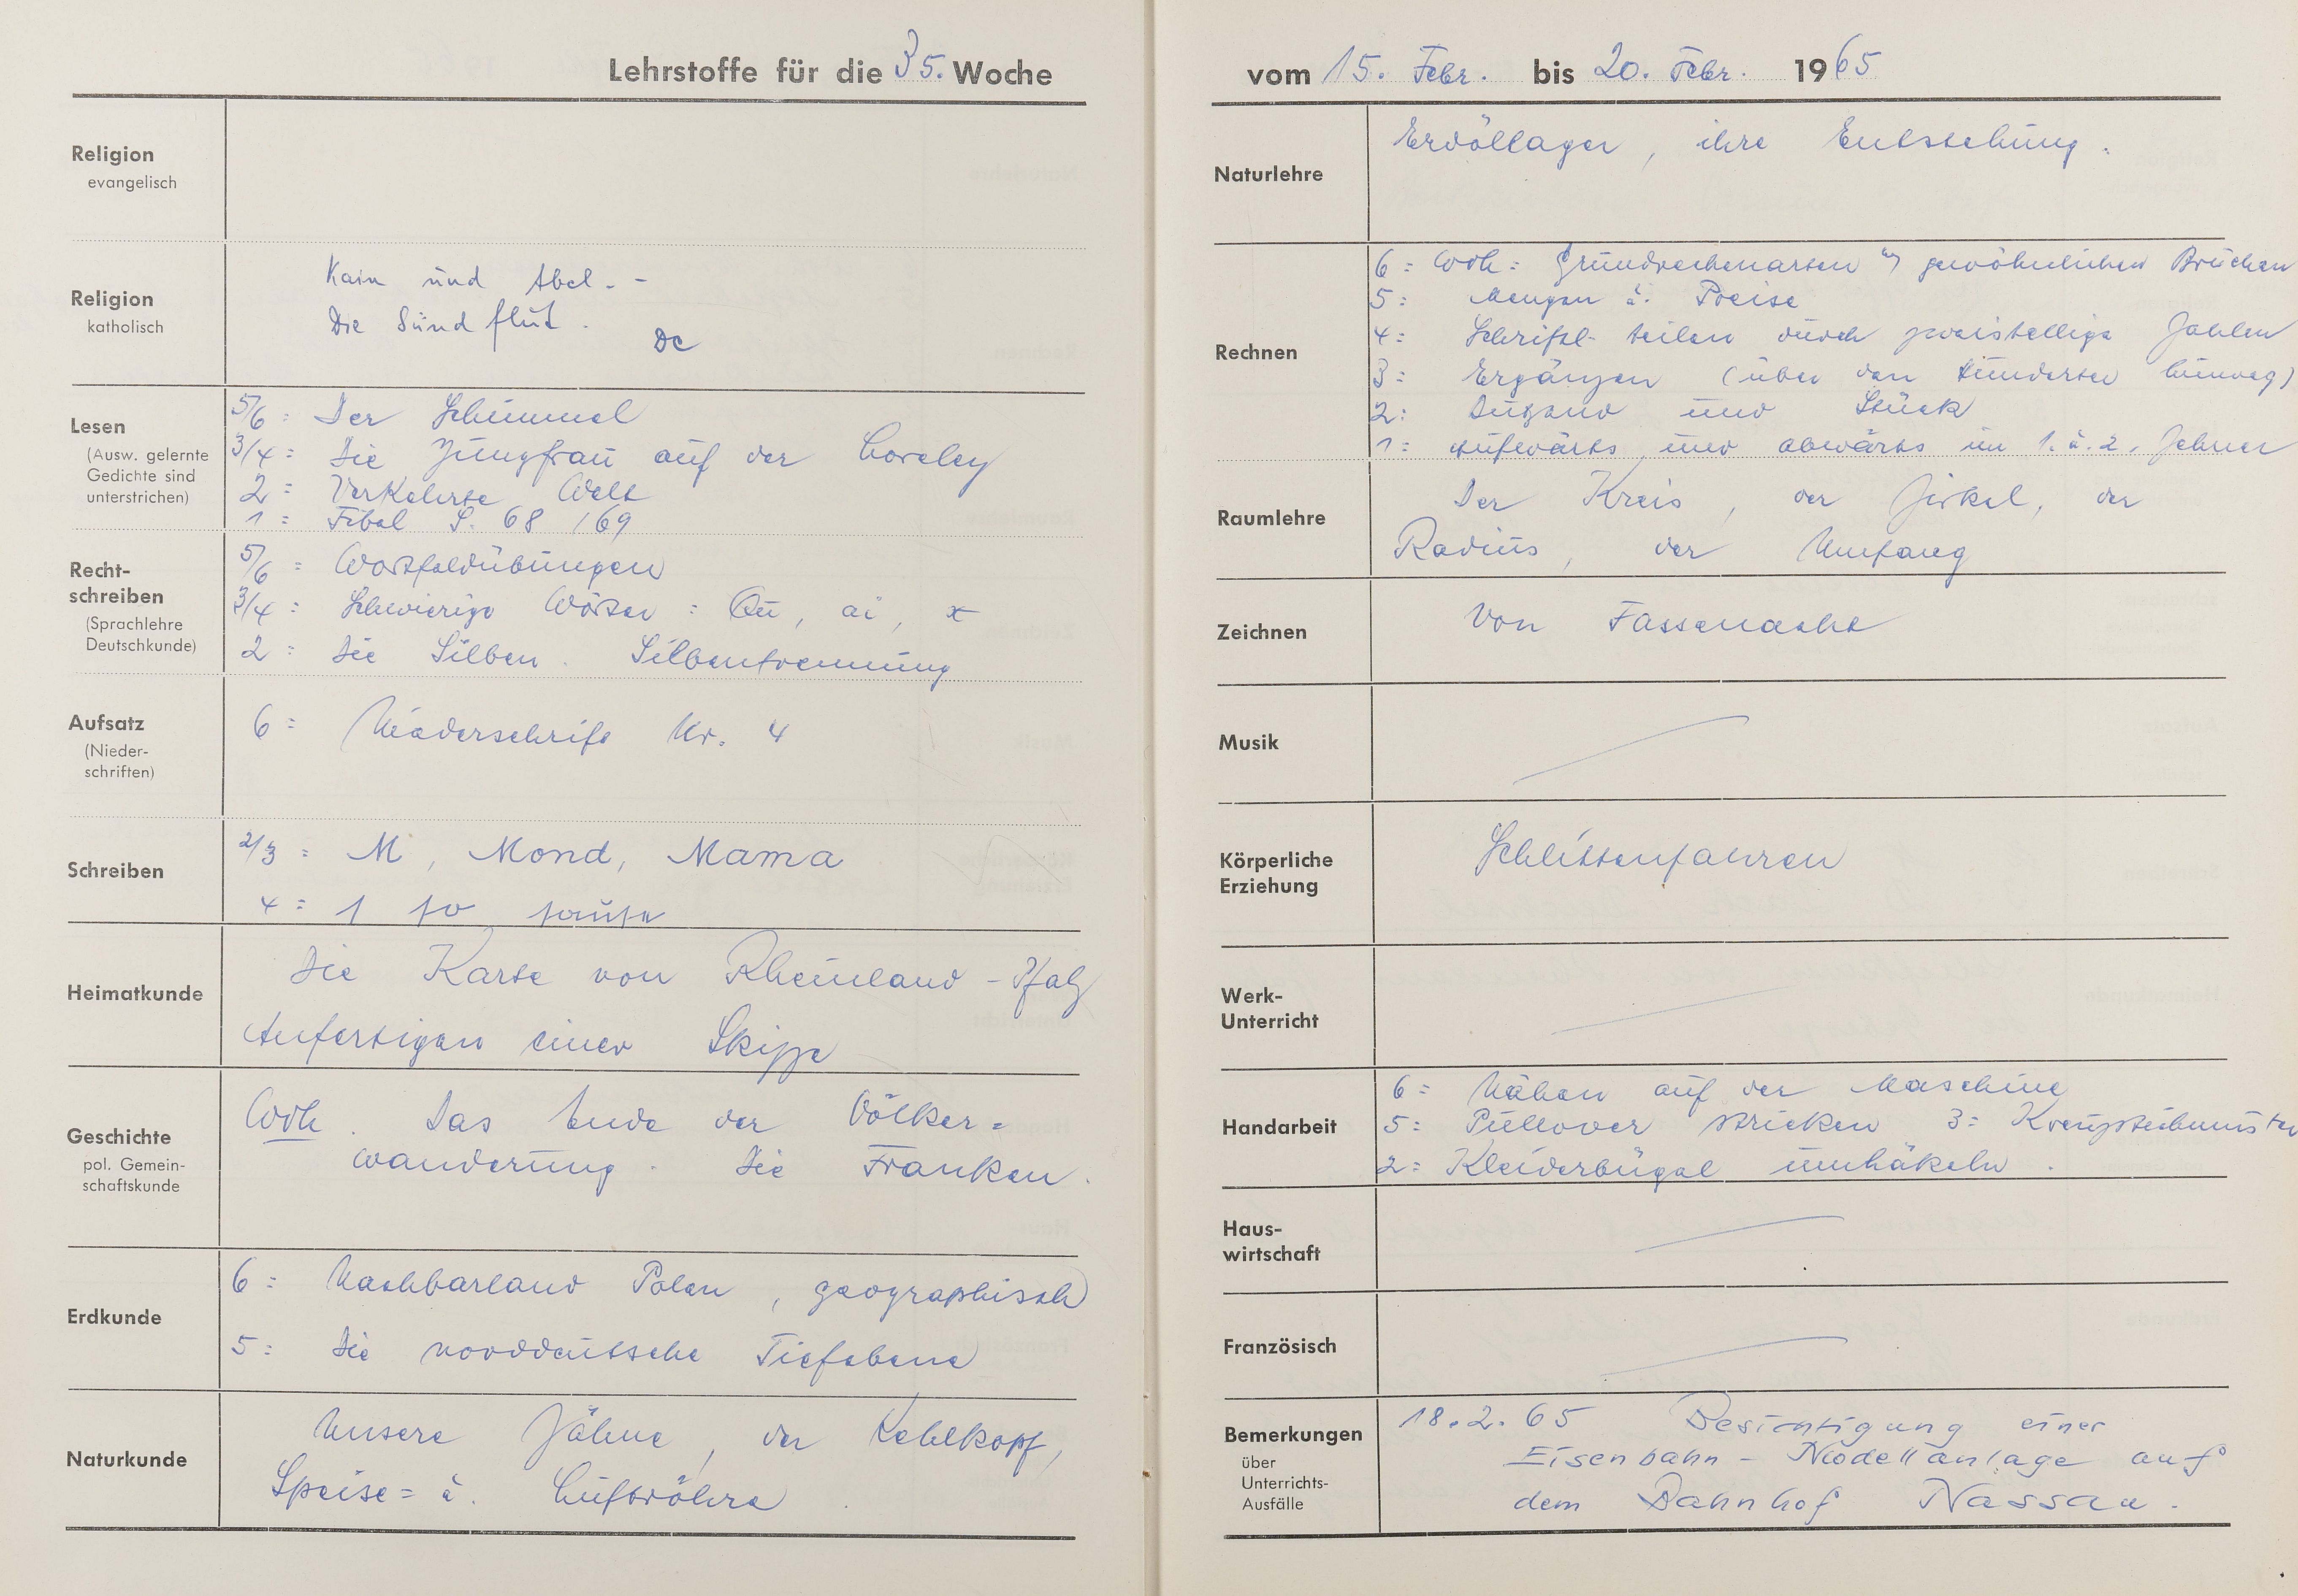 Lehrstoffe für die 35. Woche
Religion
evangelisch
Religion
katholisch
Kain und Abel. -
Die Sündflut.
De
Lesen
(Ausw. gelernte
Gedichte sind
unterstrichen)
5/6 = Der Schimmel
3/4 = Die Jungfrau auf der Loreley
2 = Verkehrte Welt
1 = Fibel S. 68 / 69
Recht-
schreiben
(Sprachlehre
Deutschkunde)
5/6 = Wortfeldübungen
3/4 = Schwierige Wörter : Qu, ai, x
2 = Die Silben. Silbentrennung
Aufsatz
(Nieder-
schriften)
6 = Niederschrift Nr. 4
Schreiben
2/3 = M, Mond, Mama
4 = 1 so
Heimatkunde
Die Karte von Rheinland - Pfalz
Anfertigen einer Skizze
Geschichte
pol. Gemein-
schaftskunde
Wdh. Das Ende der Völker=
wanderung. Die Franken.
Erdkunde
6 = Nachbarland Polen, geographisch
5 = Die norddeutsche Tiefebene
Naturkunde
Unsere Zähne, der Kehlkopf,
Speise= u. Luftröhre.
vom 15. Febr. bis 20. Febr. 1965
Naturlehre
Erdöllager, ihre Entstehung.
Rechnen
6 = Wdh = Grundrechenarten gewöhnlichen Brüchen
5 = Mengen u. Preise
4 = Schriftl. teilen durch zweistellige Zahlen
3 = Ergänzen (über den Hunderter hinweg)
2 = Dutzend und Stück
1 = Aufwärts und abwärts im 1. u. 2. Zehner
Raumlehre
Der Kreis, der Zirkel, der
Radius, der Umfang
Zeichnen
Von Fassenacht
Musik
Körperliche
Erziehung
Schlittenfahren
Werk-
Unterricht
Handarbeit
6 = Nähen auf der Maschine
5 = Pullover stricken 3 = Kreuzstichmuster
2 = Kleiderbügel umhäkeln.
Haus-
wirtschaft
Französisch
Bemerkungen
über
Unterrichts-
Ausfälle
18.2.65 Besichtigung einer
Eisenbahn - Modellanlage auf
dem Bahnhof Nassau.